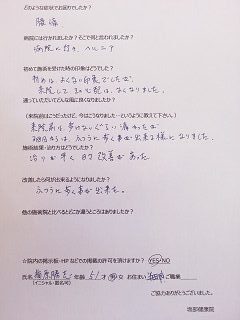 どのような症状でお困りでしたか?
腰痛
病院には行かれましたか?そこで何と言われましたか?
病院に行き、ヘルニア
初めて施術を受けた時の印象はどうでしたか?
初めは、よくない印象でしたが、
来院して
なくなりました。
通っていただいてどんな風に良くなりましたか?
(来院前はこうだったけど、今はこうなりました…というように教えて下さい。)
来院前は歩けないぐらい痛かったが
ふつうに歩く事が出来る様になりました。
施術結果・治り方はどうでしたか?
治りが早く 改善があった。
改善したら何が出来るようになりましたか?
ふつうに歩く事が出来た。
他の施術院と比べるとどこが違うところはありますか?
☆院内の掲示板・HPなどでの掲載の許可を頂けますか? YES・NO
氏名 年齢 51才 男 女 お住まい ご職業
(イニシャル・匿名可)
ご協力ありがとうございました。